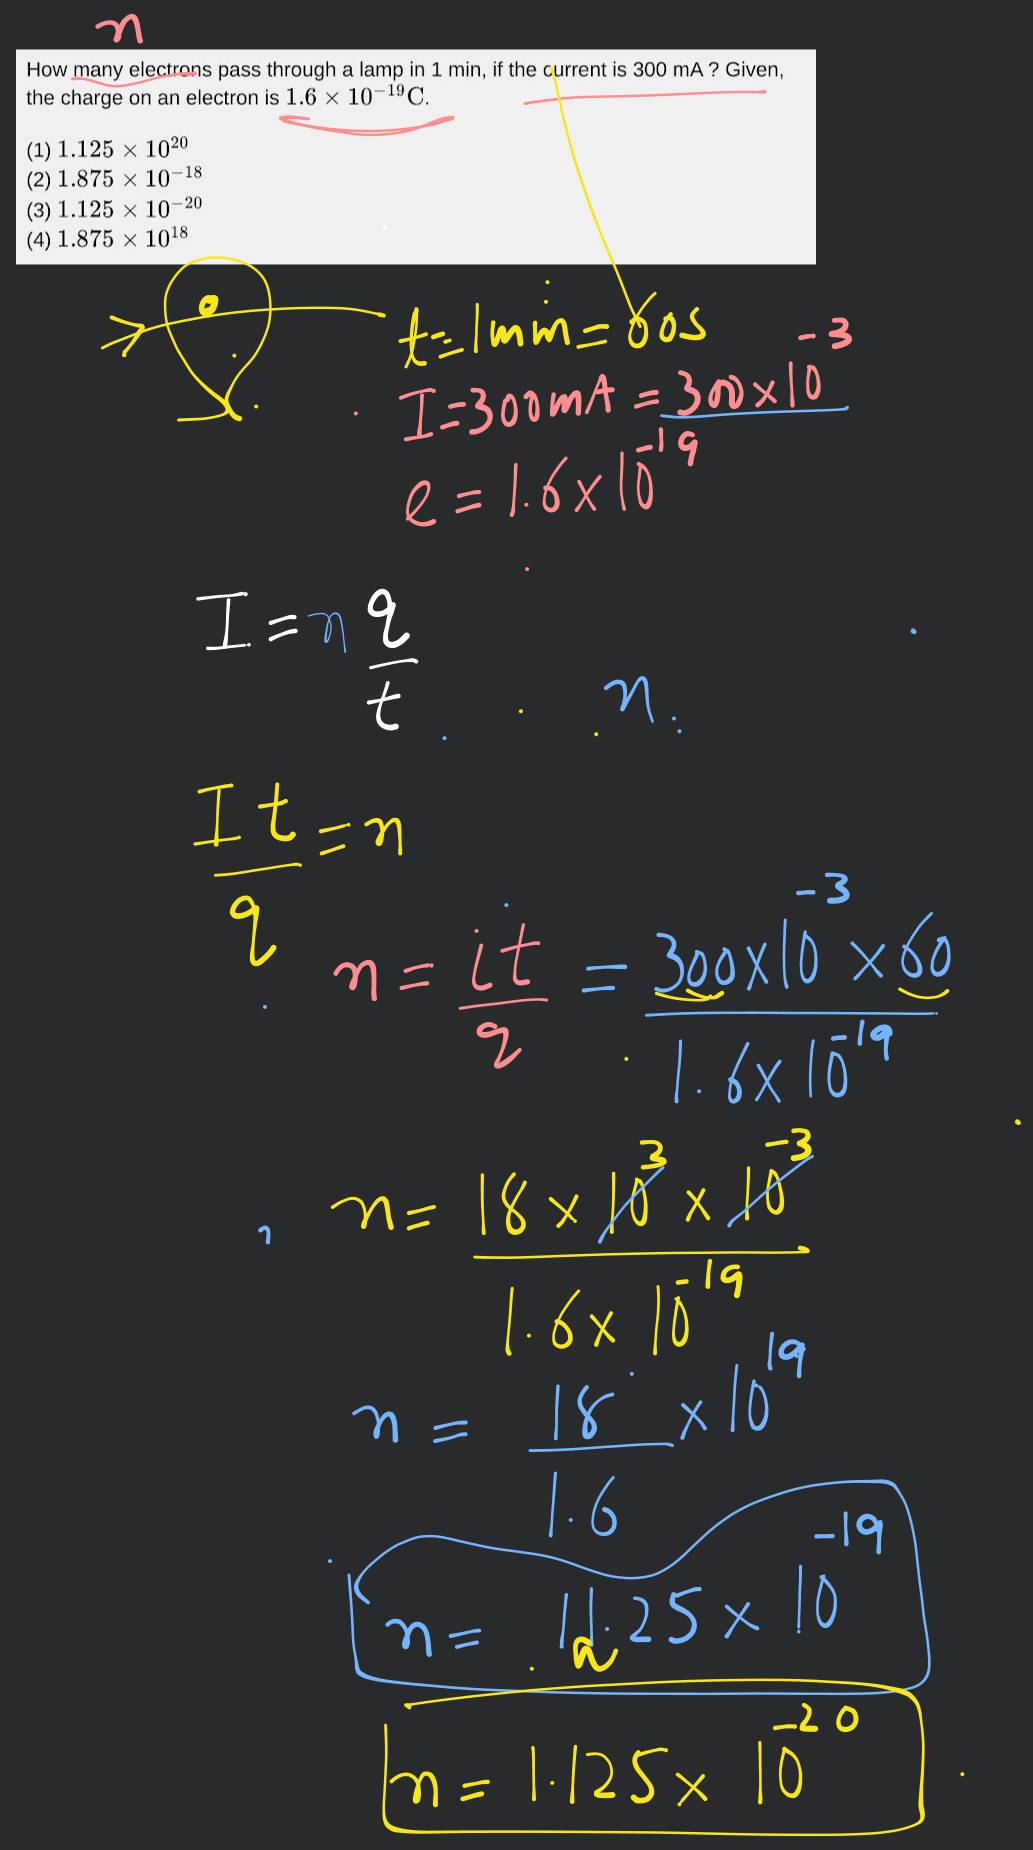 n
How many electrons pass through a lamp in 1 min, if the current is 300 mA ? Given,
the charge on an electron is 1.6 × 10⁻¹⁹C.
(1) 1.125 × 10²⁰
(2) 1.875 × 10⁻¹⁸
(3) 1.125 × 10⁻²⁰
(4) 1.875 × 10¹⁸
t = 1 min = 60s
I = 300mA = 300 × 10⁻³
e = 1.6 × 10⁻¹⁹
I = n q/t
n
It/q = n
n = it/q = 300 × 10⁻³ × 60 / 1.6 × 10⁻¹⁹
n = 18 × 10³ × 10⁻³ / 1.6 × 10⁻¹⁹
n = 18/1.6 × 10¹⁹
n = 11.25 × 10⁻¹⁹
n = 1.125 × 10⁻²⁰